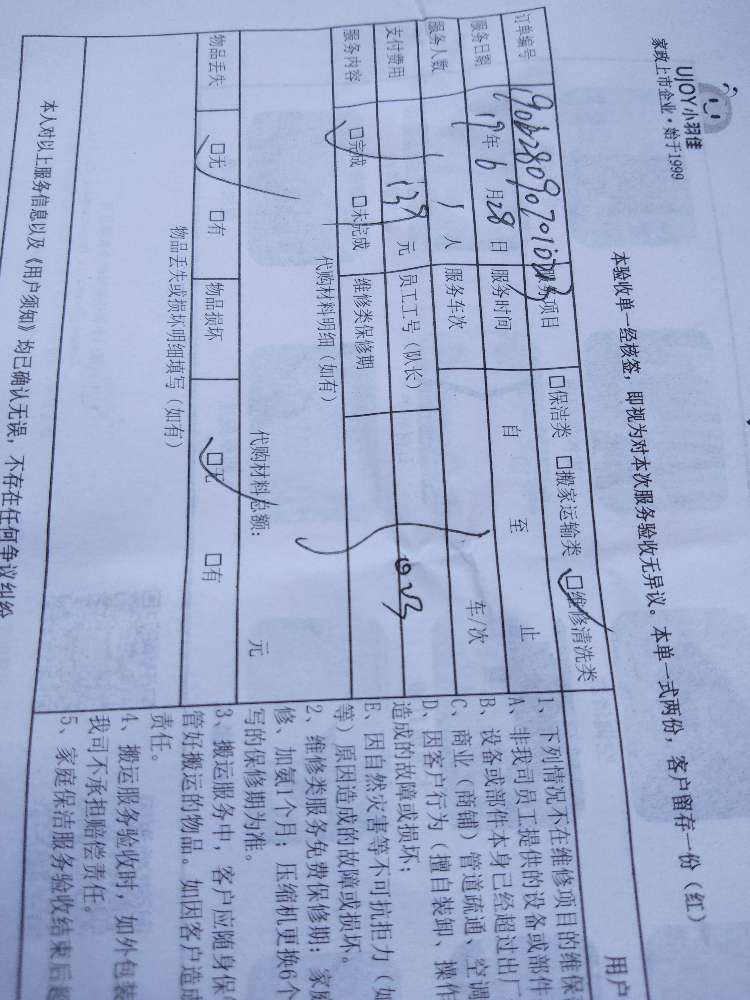 UJOY小羽佳
家政上市企业·始于1999
本验收单一经核签，即视为对本次服务验收无异议。本单一式两份，客户留存一份（红）
订单编号 服务项目 □保洁类 □搬家运输类 □维修清洗类
服务日期 19年6月28日 服务时间 自 至 止
服务人数 1人 服务车次 车/次
支付费用 138元 员工工号（队长）
服务内容 □完成 □未完成 维修类保修期
代购材料明细（如有）
代购材料总额： 元
物品丢失 □无 □有 物品损坏 □无 □有
物品丢失或损坏明细填写（如有）
本人对以上服务信息以及《用户须知》均已确认无误，不存在任何争议纠纷
用户
1、下列情况不在维修项目的维保
A、非我司员工提供的设备或部件
B、设备或部件本身已经超过出厂
C、商业（商铺）管道疏通、空调
D、因客户行为（擅自装卸、操作
造成的故障或损坏；
E、因自然灾害等不可抗拒力（如
等）原因造成的故障或损坏。
2、维修类服务免费保修期：家庭
修、加氨1个月；压缩机更换6个
写的保修期为准。
3、搬运服务中，客户应随身保
管好搬运的物品。如因客户造成
责任。
4、搬运服务验收时，如外包装
我司不承担赔偿责任。
5、家庭保洁服务验收结束后